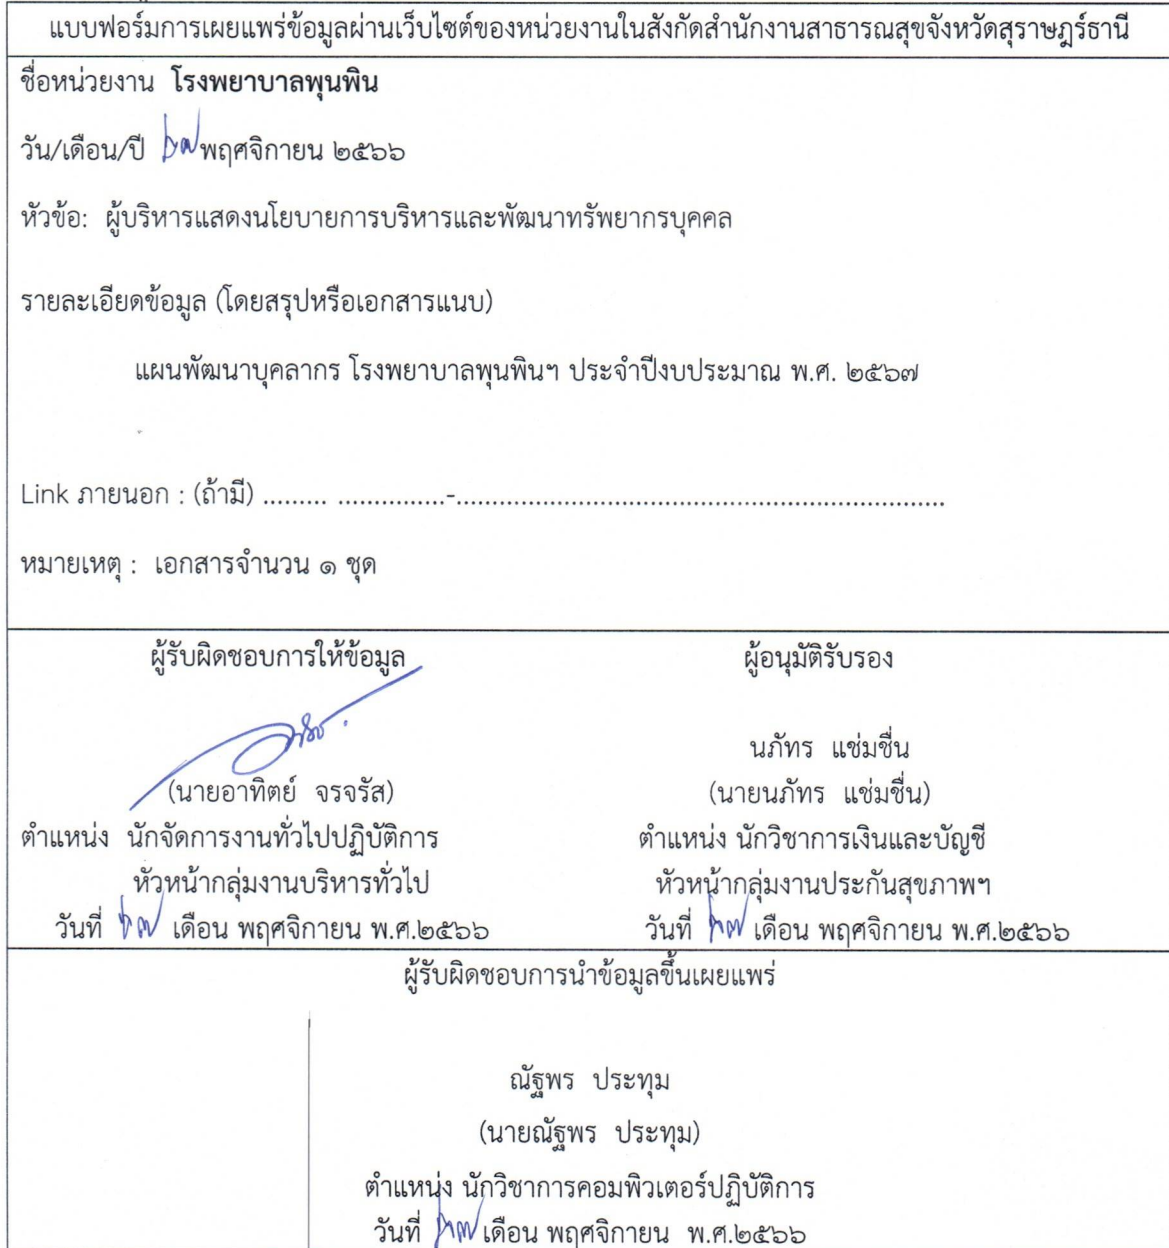 แบบฟอร์มการเผยแพร่ข้อมูลผ่านเว็บไซต์ของหน่วยงานในสังกัดสำนักงานสาธารณสุขจังหวัดสุราษฎร์ธานี
ชื่อหน่วยงาน โรงพยาบาลพุนพิน
วัน/เดือน/ปี ๒๗ พฤศจิกายน ๒๕๖๖
หัวข้อ: ผู้บริหารแสดงนโยบายการบริหารและพัฒนาทรัพยากรบุคคล
รายละเอียดข้อมูล (โดยสรุปหรือเอกสารแนบ)
แผนพัฒนาบุคลากร โรงพยาบาลพุนพินฯ ประจำปีงบประมาณ พ.ศ. ๒๕๖๗
Link ภายนอก : (ถ้ามี) ......... ...............-.....................................................................
หมายเหตุ : เอกสารจำนวน ๑ ชุด
ผู้รับผิดชอบการให้ข้อมูล
(นายอาทิตย์ จรจรัส)
ตำแหน่ง นักจัดการงานทั่วไปปฏิบัติการ
หัวหน้ากลุ่มงานบริหารทั่วไป
วันที่ ๒๗ เดือน พฤศจิกายน พ.ศ.๒๕๖๖
ผู้อนุมัติรับรอง
นภัทร แช่มชื่น
(นายนภัทร แช่มชื่น)
ตำแหน่ง นักวิชาการเงินและบัญชี
หัวหน้ากลุ่มงานประกันสุขภาพฯ
วันที่ ๒๗ เดือน พฤศจิกายน พ.ศ.๒๕๖๖
ผู้รับผิดชอบการนำข้อมูลขึ้นเผยแพร่
ณัฐพร ประทุม
(นายณัฐพร ประทุม)
ตำแหน่ง นักวิชาการคอมพิวเตอร์ปฏิบัติการ
วันที่ ๒๗ เดือน พฤศจิกายน พ.ศ.๒๕๖๖